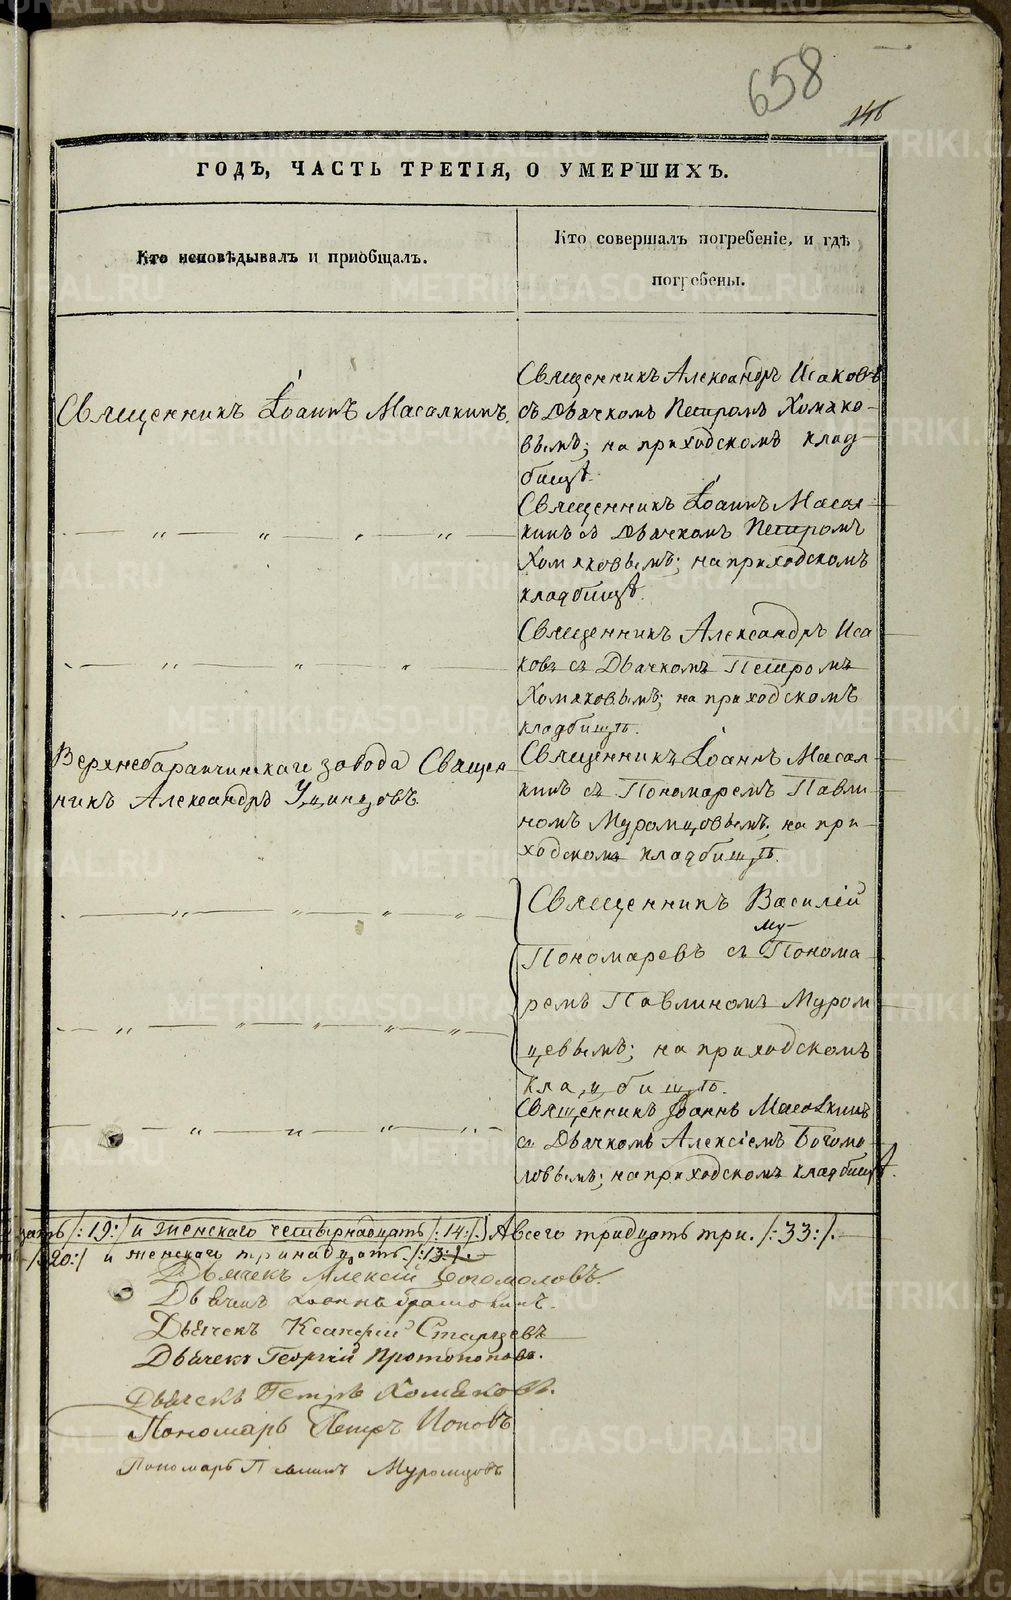 658
146
ГОДЪ, ЧАСТЬ ТРЕТІЯ, О УМЕРШИХЪ.
Кто исповѣдывалъ и пріобщалъ.
Кто совершалъ погребеніе, и гдѣ
погребены.
Священникъ Іоаннъ Масалкинъ.
Священникъ Александръ Исаковъ
съ Дьячкомъ Петромъ Хомяко-
вымъ; на приходскомъ клад-
бищѣ.
Священникъ Іоаннъ Масал-
кинъ съ Дьячкомъ Петромъ
Хомяковымъ; на приходскомъ
кладбищѣ.
Священникъ Александръ Иса
ковъ съ Дьячкомъ Петромъ
Хомяковымъ; на приходскомъ
кладбищѣ.
Верхнебаранчинскаго завода Священ
никъ Александръ Удинцовъ.
Священникъ Іоаннъ Масал-
кинъ съ Пономаремъ Павли-
номъ Муромцовымъ. на при-
ходскомъ кладбищѣ.
Священникъ Василій
Пономаревъ съ Понома-
ремъ Павлиномъ Муром
цевымъ; на приходскомъ
кладбищѣ.
Священникъ Іоаннъ Масалкинъ
съ Дьячкомъ Алексіемъ Богомо-
ловымъ; на приходскомъ кладбищѣ.
цать /:19:/ и женскаго четырнадцать /:14:/. А всего тридцать три. /:33:/.
/:20:/ и женскаго тринадцать. /:13:/.
Дьячекъ Алексій Богомоловъ.
Дьячекъ Іоаннъ
Дьячекъ Ксанфій Старцевъ
Дьячекъ Георгій Протопоповъ.
Дьячекъ Петръ Хомяковъ.
Пономарь Петръ Поповъ
Пономарь Павлинъ Муромцовъ